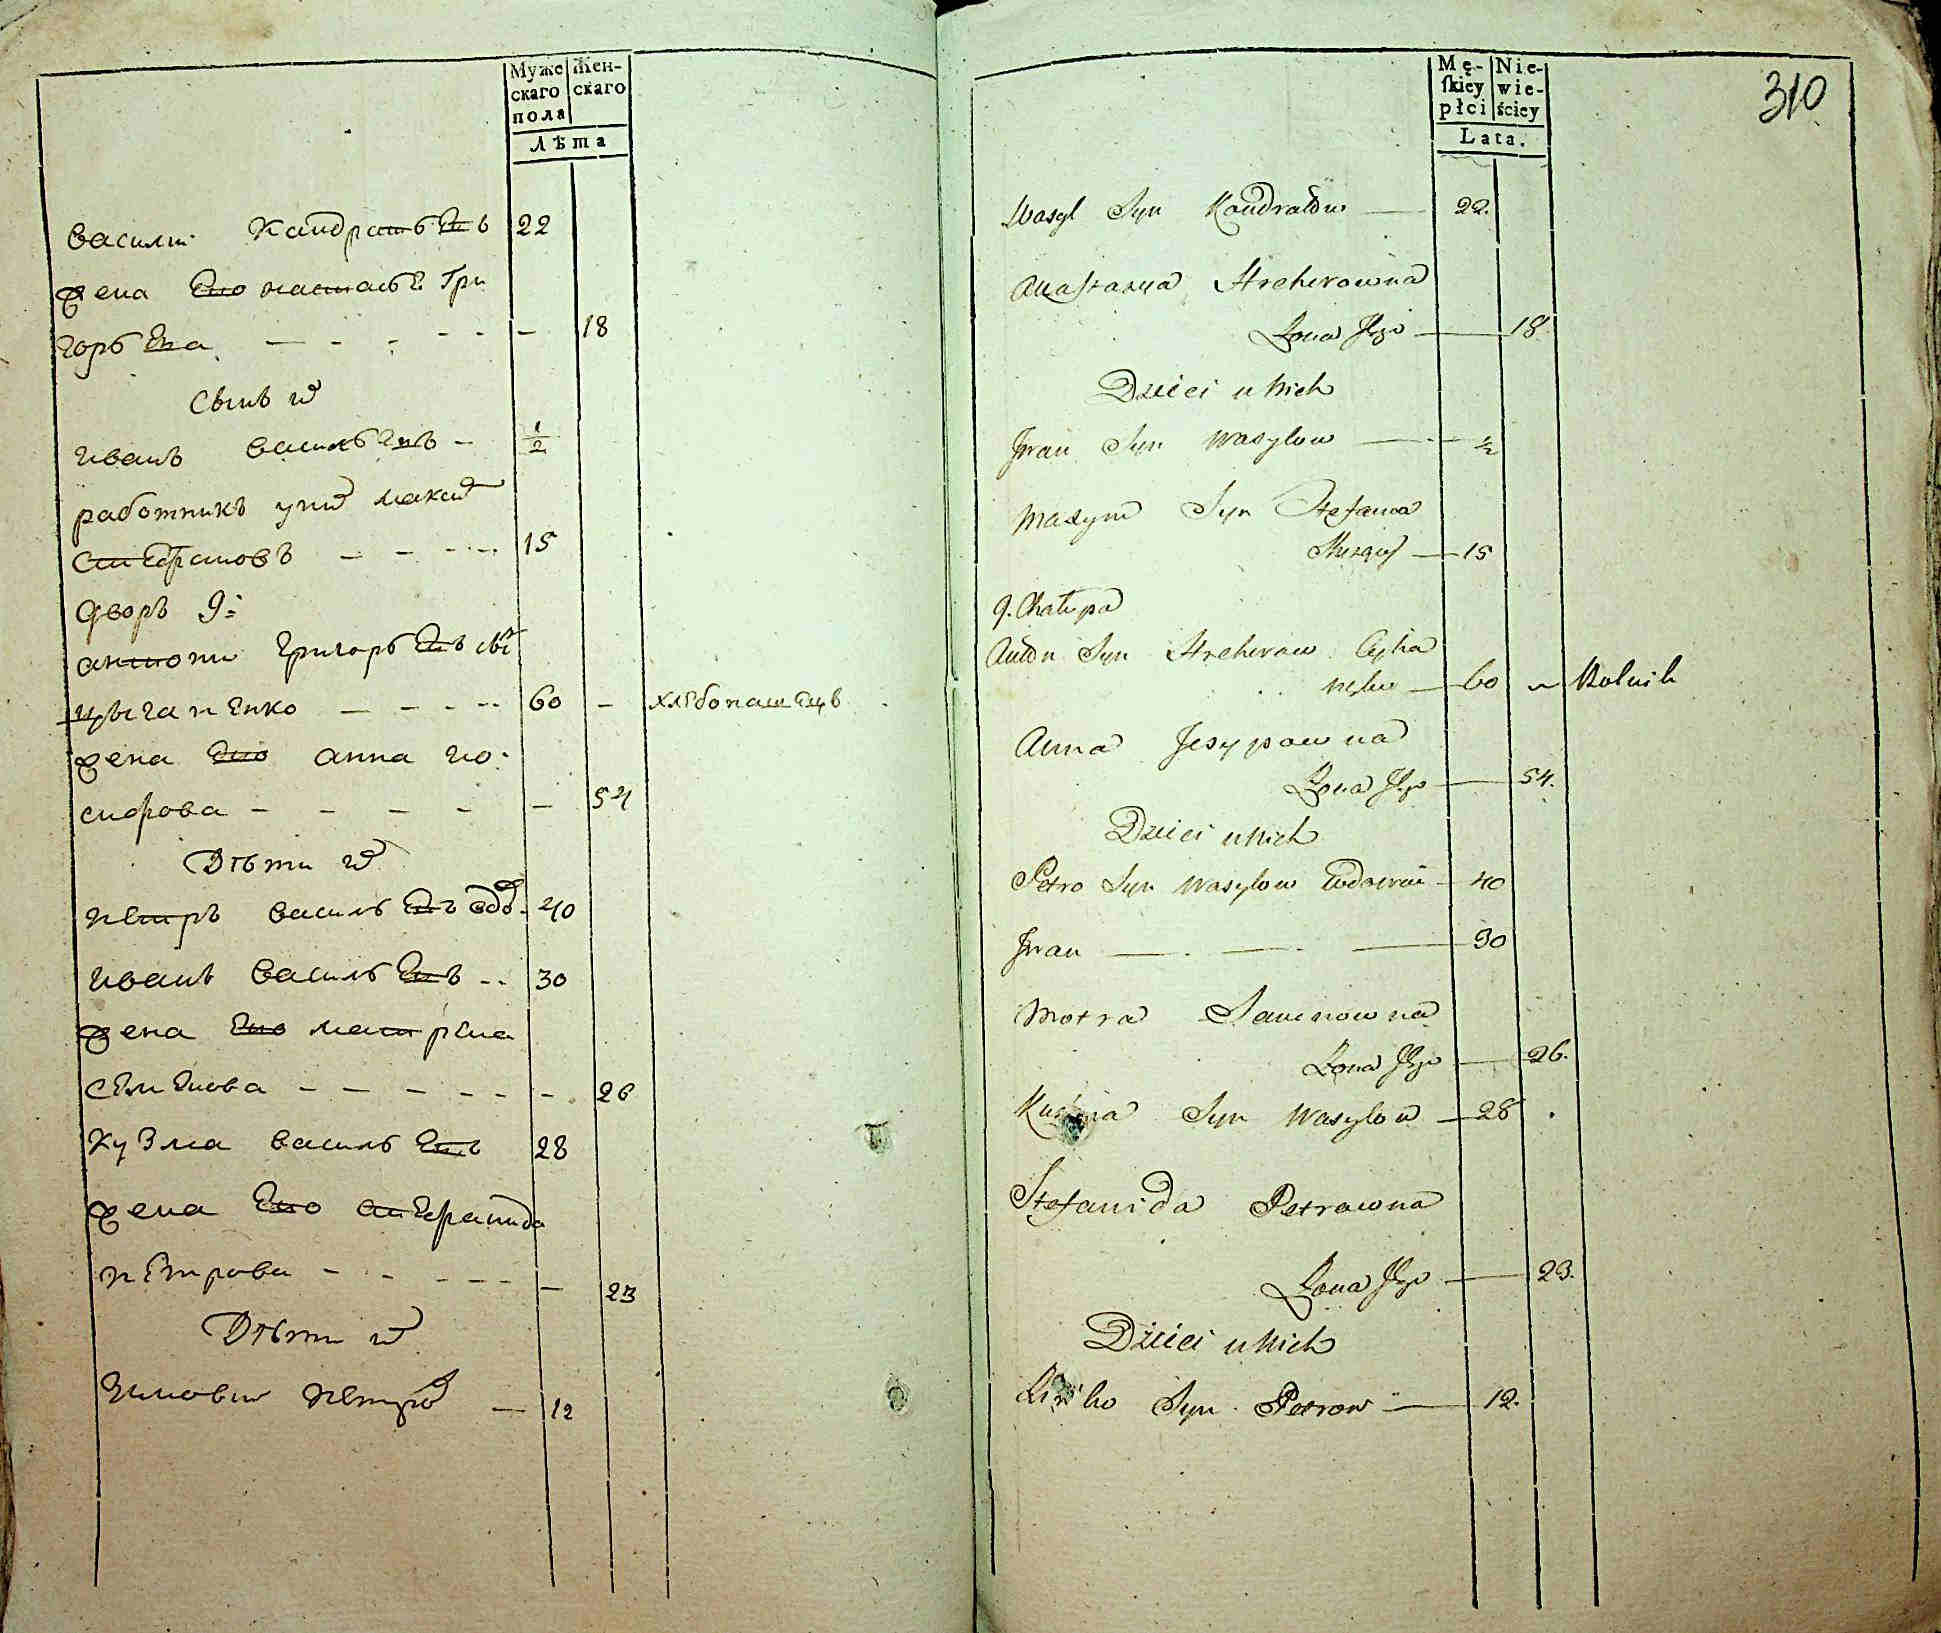 Муже
скаго
пола
Жен-
скаго
Лѣта
Василии Кандратьевъ 22
жена Ево настасье Гри
горьева 18
Сынъ их
Иванъ Васильевъ 1/2
работникъ у них максим
Степановъ 15
дворъ 9:
антони Григорьевъ
цыганенко 60 хлебопашецъ
жена Ево анна ио:
сифова 54
Дѣти их
петръ васильевъ вдов. 40
иванъ васильевъ 30
жена Ево матрена
семенова 26
Кузма васильевъ 28
жена Ево степанида
петрова 23
Дѣти их
петров 12
310
Mę-
skiey
płci
Nie-
wie-
ściey
Lata.
Wasyl Syn Kondratow 22.
Anastazya Hrehorowna
Zona Jego 18.
Dzieci u Nich
Jwan Syn Wasylow 1/2
Maxym Syn Stefanow
Służący 15
9. Chałupa
Anton Syn Hrehorow Cyha
nenko 60 Rolnik
Anna Jesypowna
Zona Jego 54.
Dzieci u Nich
Petro Syn Wasylow Wdowiec 40
Jwan 30
Motra Samenowna
Zona Jego 26.
Kuzma Syn Wasylow 28
Stefanida Petrowna
Zona Jego 23.
Dzieci u Nich
Syn Petrow 12.